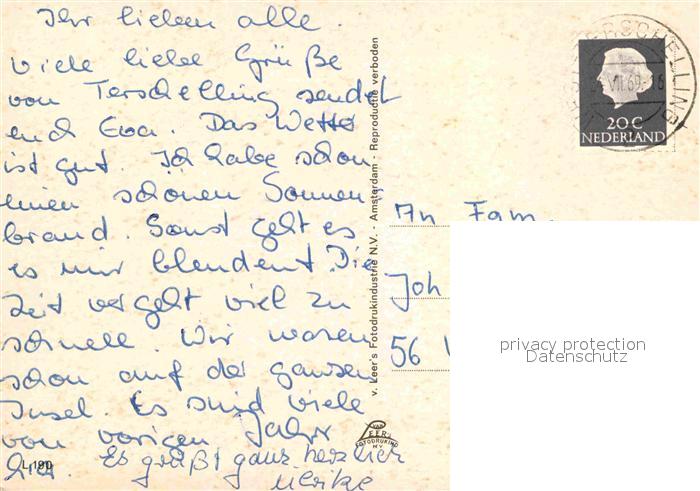 Ihr lieben alle.
viele liebe Grüße
von Terschelling sendet
euch Eva. Das Wetter
ist gut. Ich habe schon
einen schönen Sonnen
brand. Sonst geht es
es mir blendent. Die
Zeit vergeht viel zu
schnell. Wir waren
schon auf der ganzen
Insel. Es sind viele
von vorigen Jahr
hier. Es grüßt ganz herzlich
Ulrike
L 190
v. Leer's Fotodrukindustrie N.V. - Amsterdam - Reproductie verboden
VAN LEER'S
FOTODRUKIND
N.V.
TERSCHELLING
VII.69
20 C
NEDERLAND
An Fam.
Joh
56
privacy protection
Datenschutz